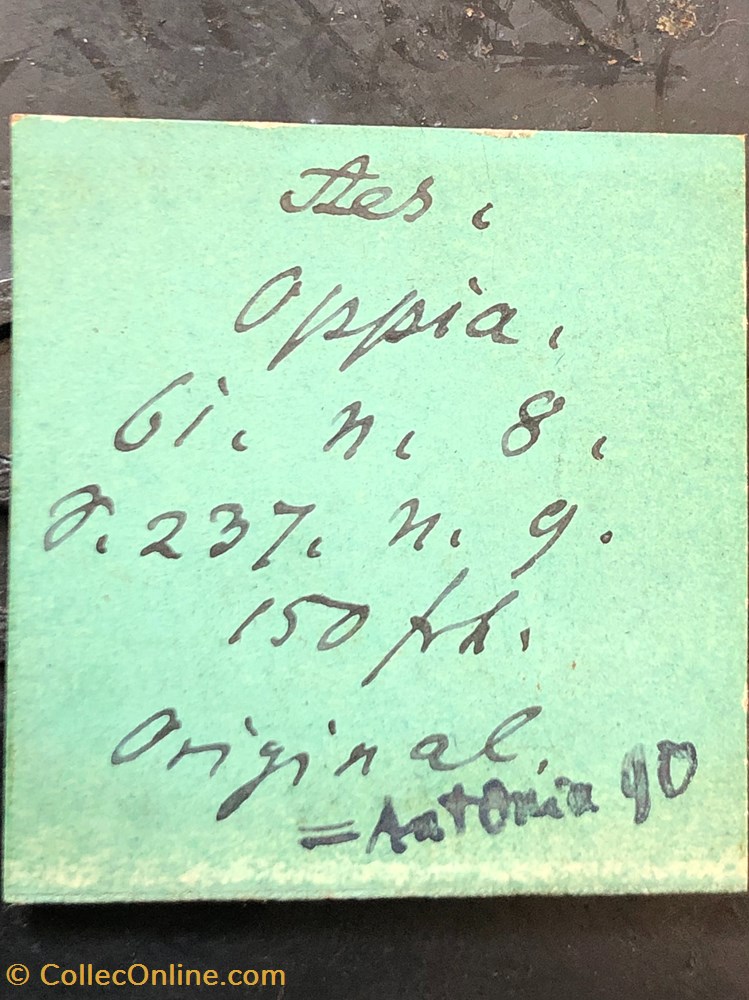 Aes.
Oppia.
6i. n. 8.
P. 237. n. 9.
150 frk.
Original.
= Antonia 90
© CollecOnline.com